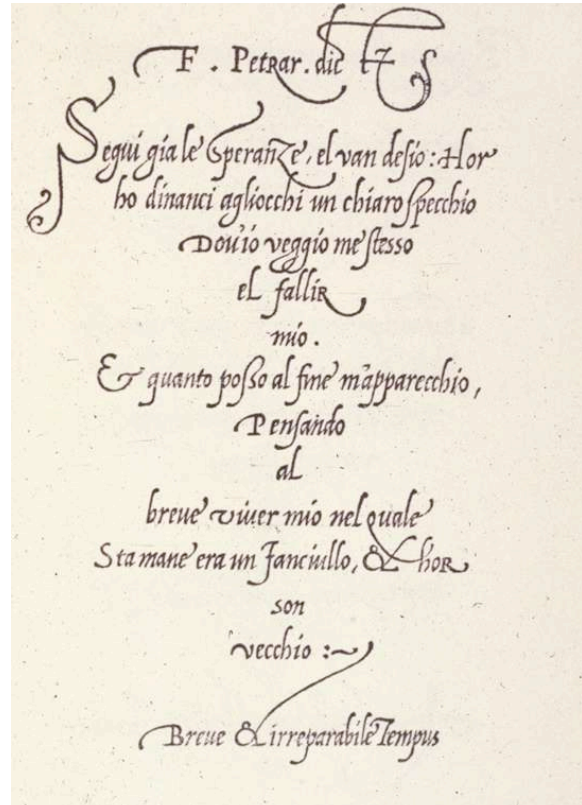 F. Petrar. dic
Segui gia le Speranze, el van desio: Hor
ho dinanci agliocchi un chiaro specchio
Dou'io veggio me stesso
el fallir
mio.
& quanto posso al fine m'apparecchio,
Pensando
al
breue viuer mio nel quale
Sta mane era un fanciullo, & hor
son
vecchio :~
Breue & irreparabile Tempus